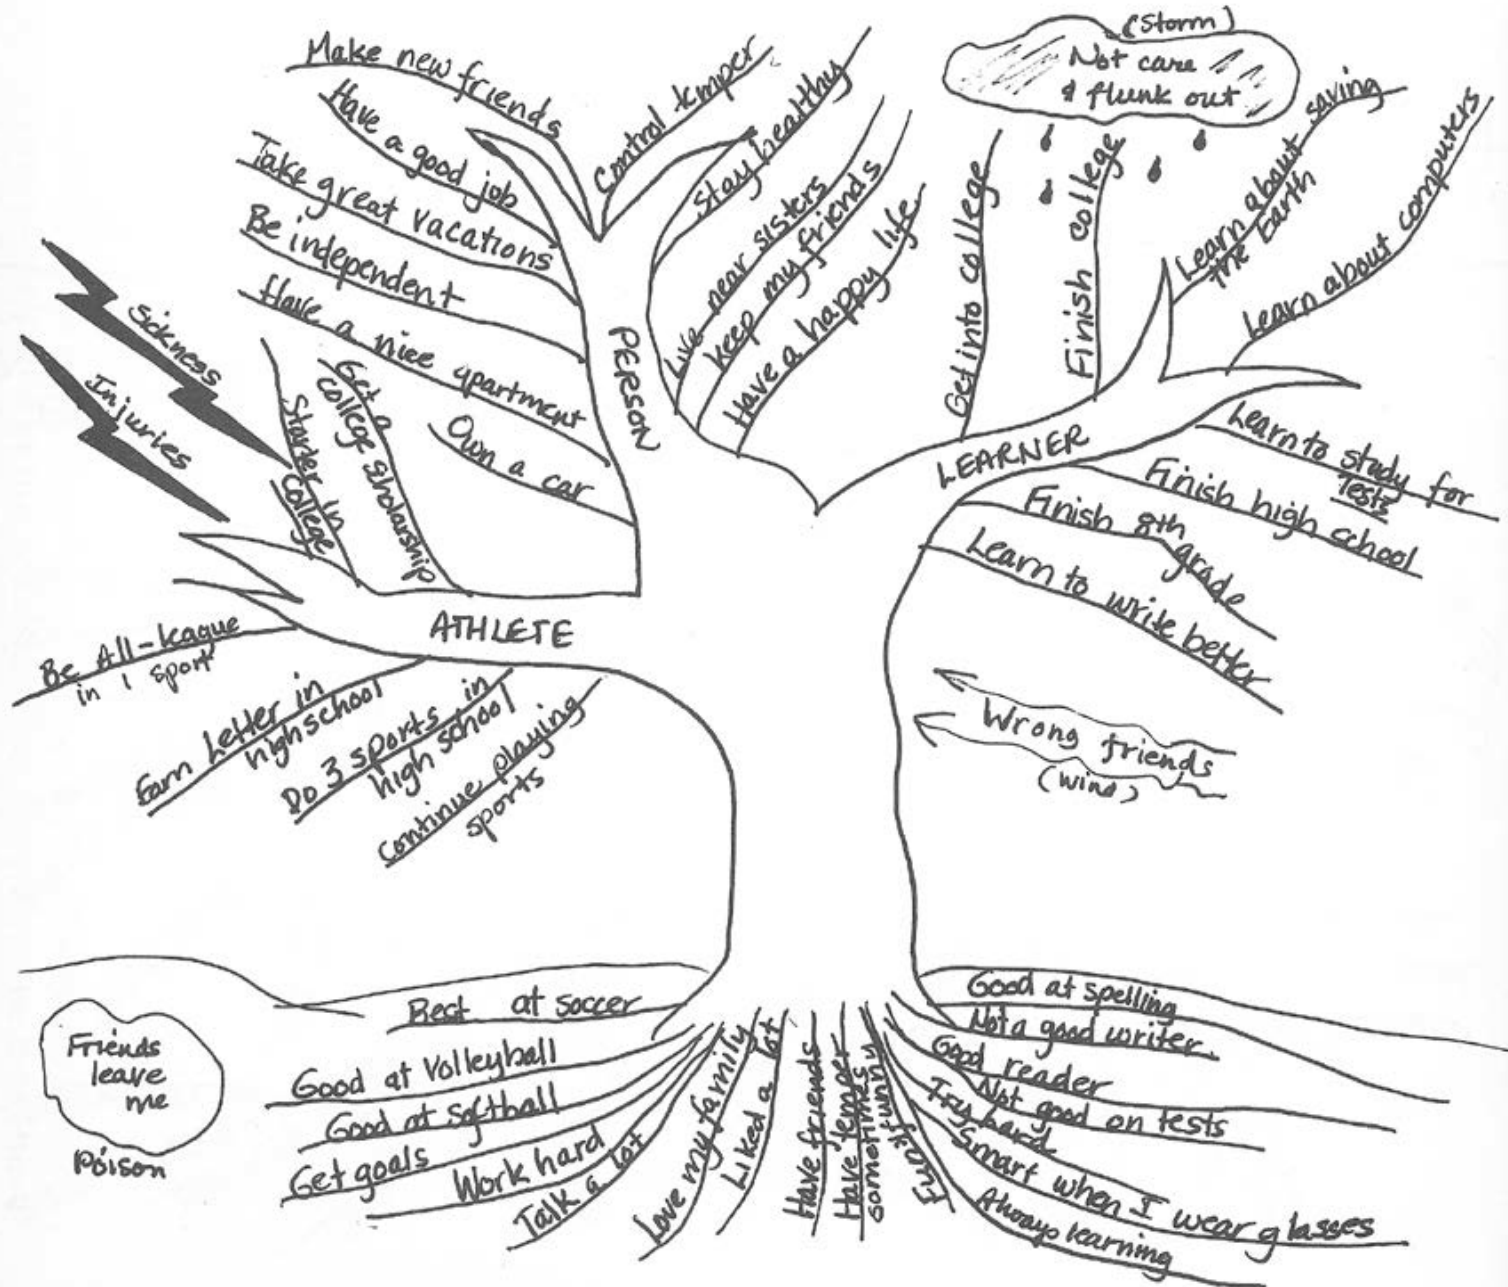 Make new friends
Have a good job
Take great vacations
Be independent
Have a nice apartment
Own a car
PERSON
Control temper
Stay healthy
Live near sisters
keep my friends
Have a happy life
(Storm)
Not care
& flunk out
Get into college
Finish college
Learn about saving
the Earth
Learn about computers
LEARNER
Learn to study for
Tests
Finish high school
Finish 8th grade
Learn to write better
Wrong friends
(wind)
Sickness
Injuries
Starter in
college
Get a
college scholarship
ATHLETE
Be All-league
in 1 sport
Earn Letter in
high school
Do 3 sports in
high school
continue playing
sports
Friends
leave
me
Poison
Best at soccer
Good at Volleyball
Good at softball
Get goals
Work hard
Talk a lot
Love my family
Liked a lot
Have friends
Have temper
sometimes
Funky
funny
Good at spelling
Not a good writer.
Good reader
Not good on tests
Try hard
Smart when I wear glasses
Always learning